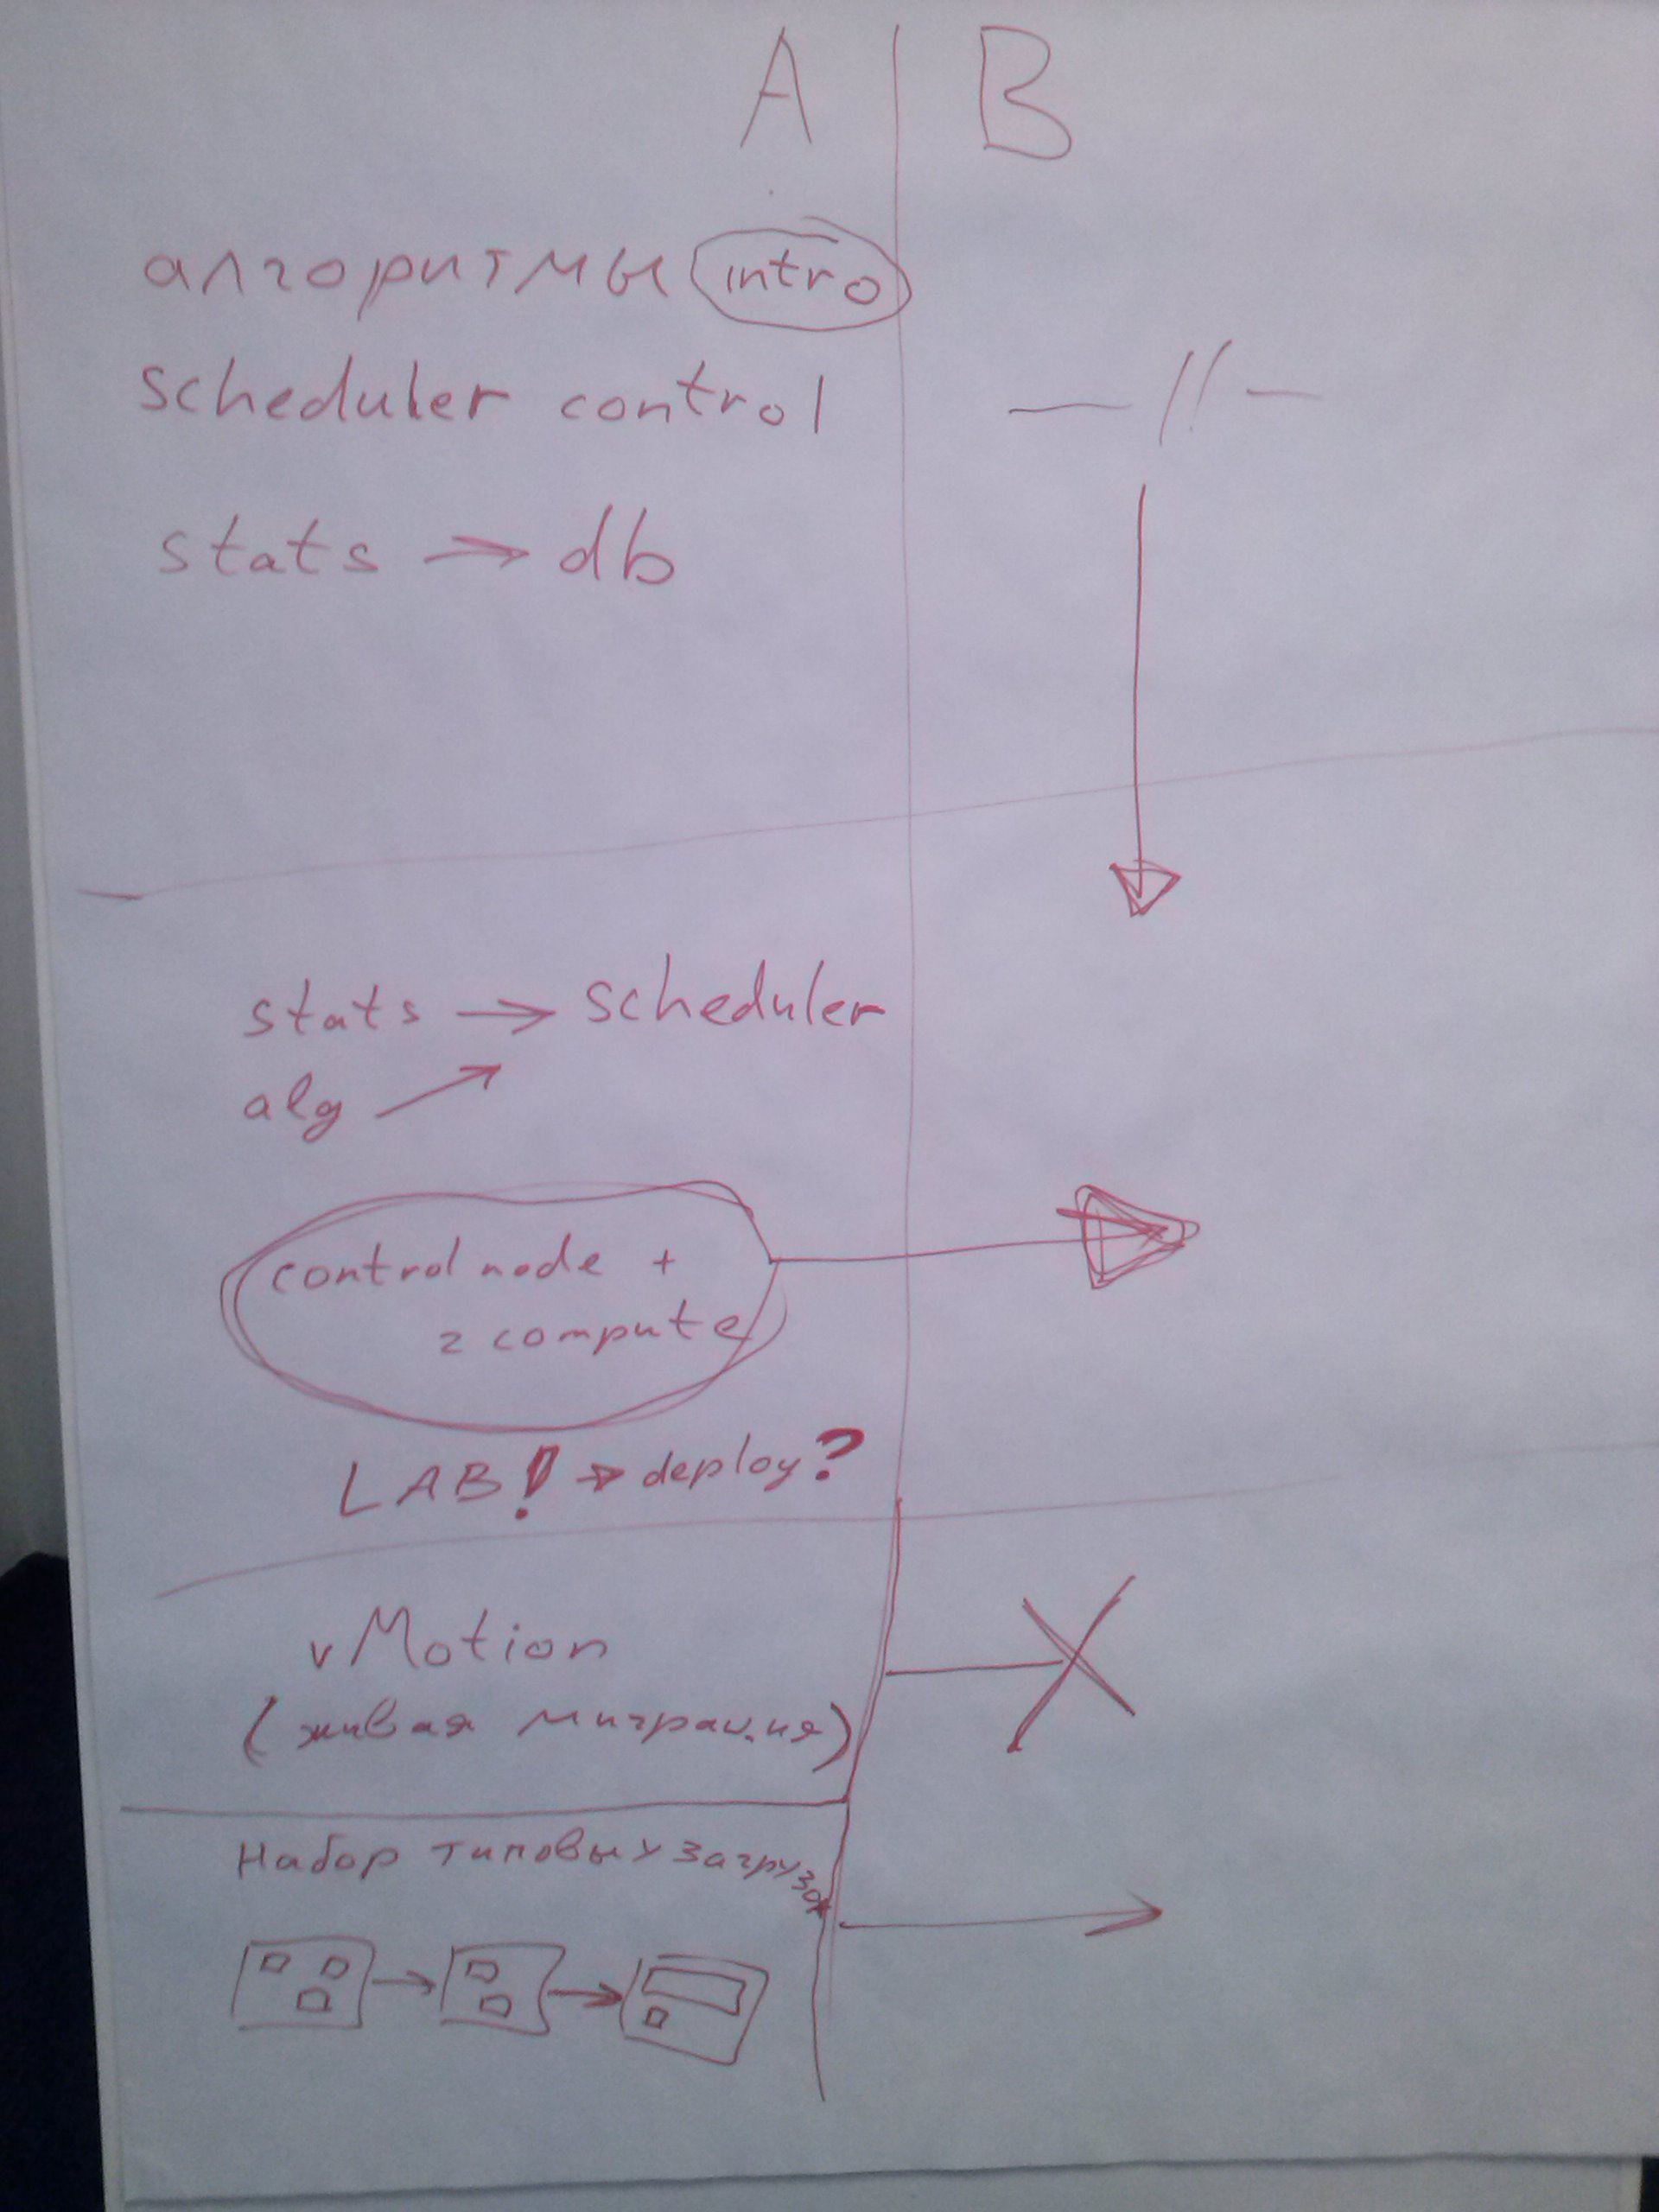 A B
алгоритмы intro
scheduler control —//—
stats → db
stats → scheduler
alg ↗
control node +
2 compute
LAB! → deploy?
vMotion
(живая миграция)
Набор типовых загрузок